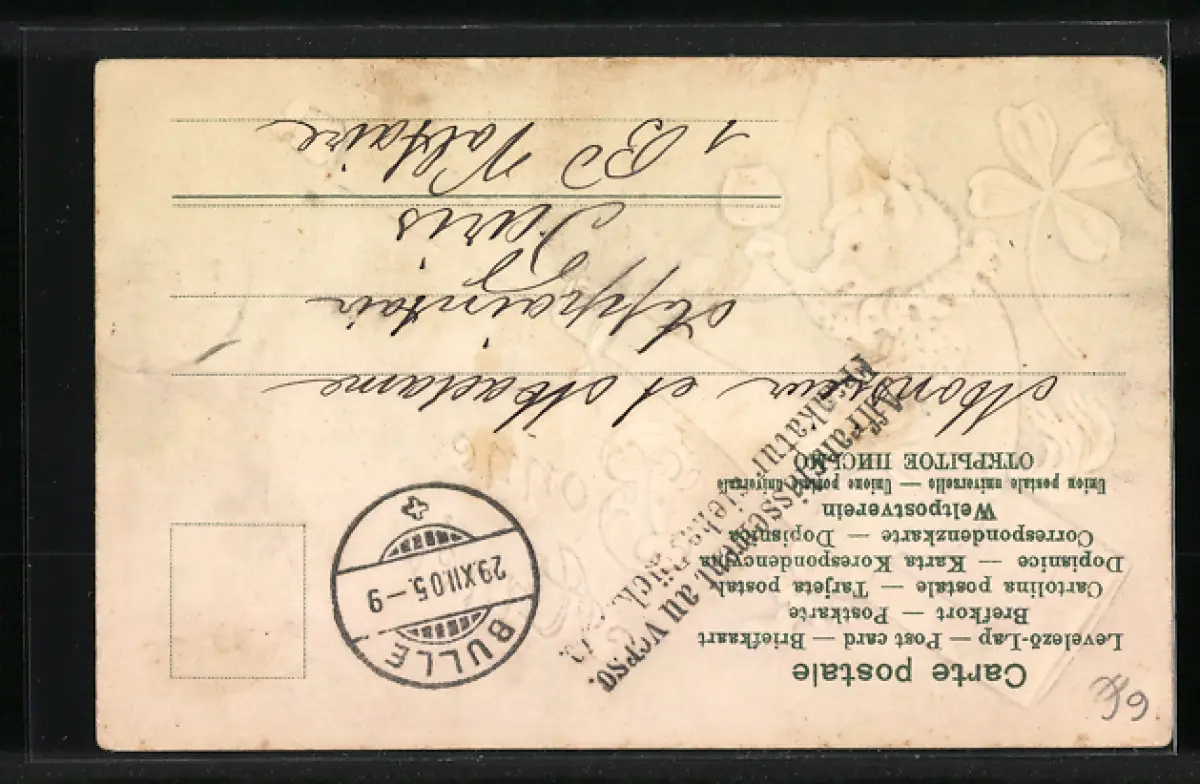 Carte postale
Levelező-Lap — Post card — Briefkaart
Brefkort — Postkarte
Cartolina postale — Tarjeta postal
Dopisnice — Karta Korespondencyjna
Correspondenzkarte — Dopisnica
Weltpostverein
Union postale universelle — Unione postale universale
ОТКРЫТОЕ ПИСЬМО
Affranchissement au verso.
Frankatur siehe Rücks.
BULLE
29.XII.05.–9
Monsieur et Madame
Paris
1 Bd Voltaire
69